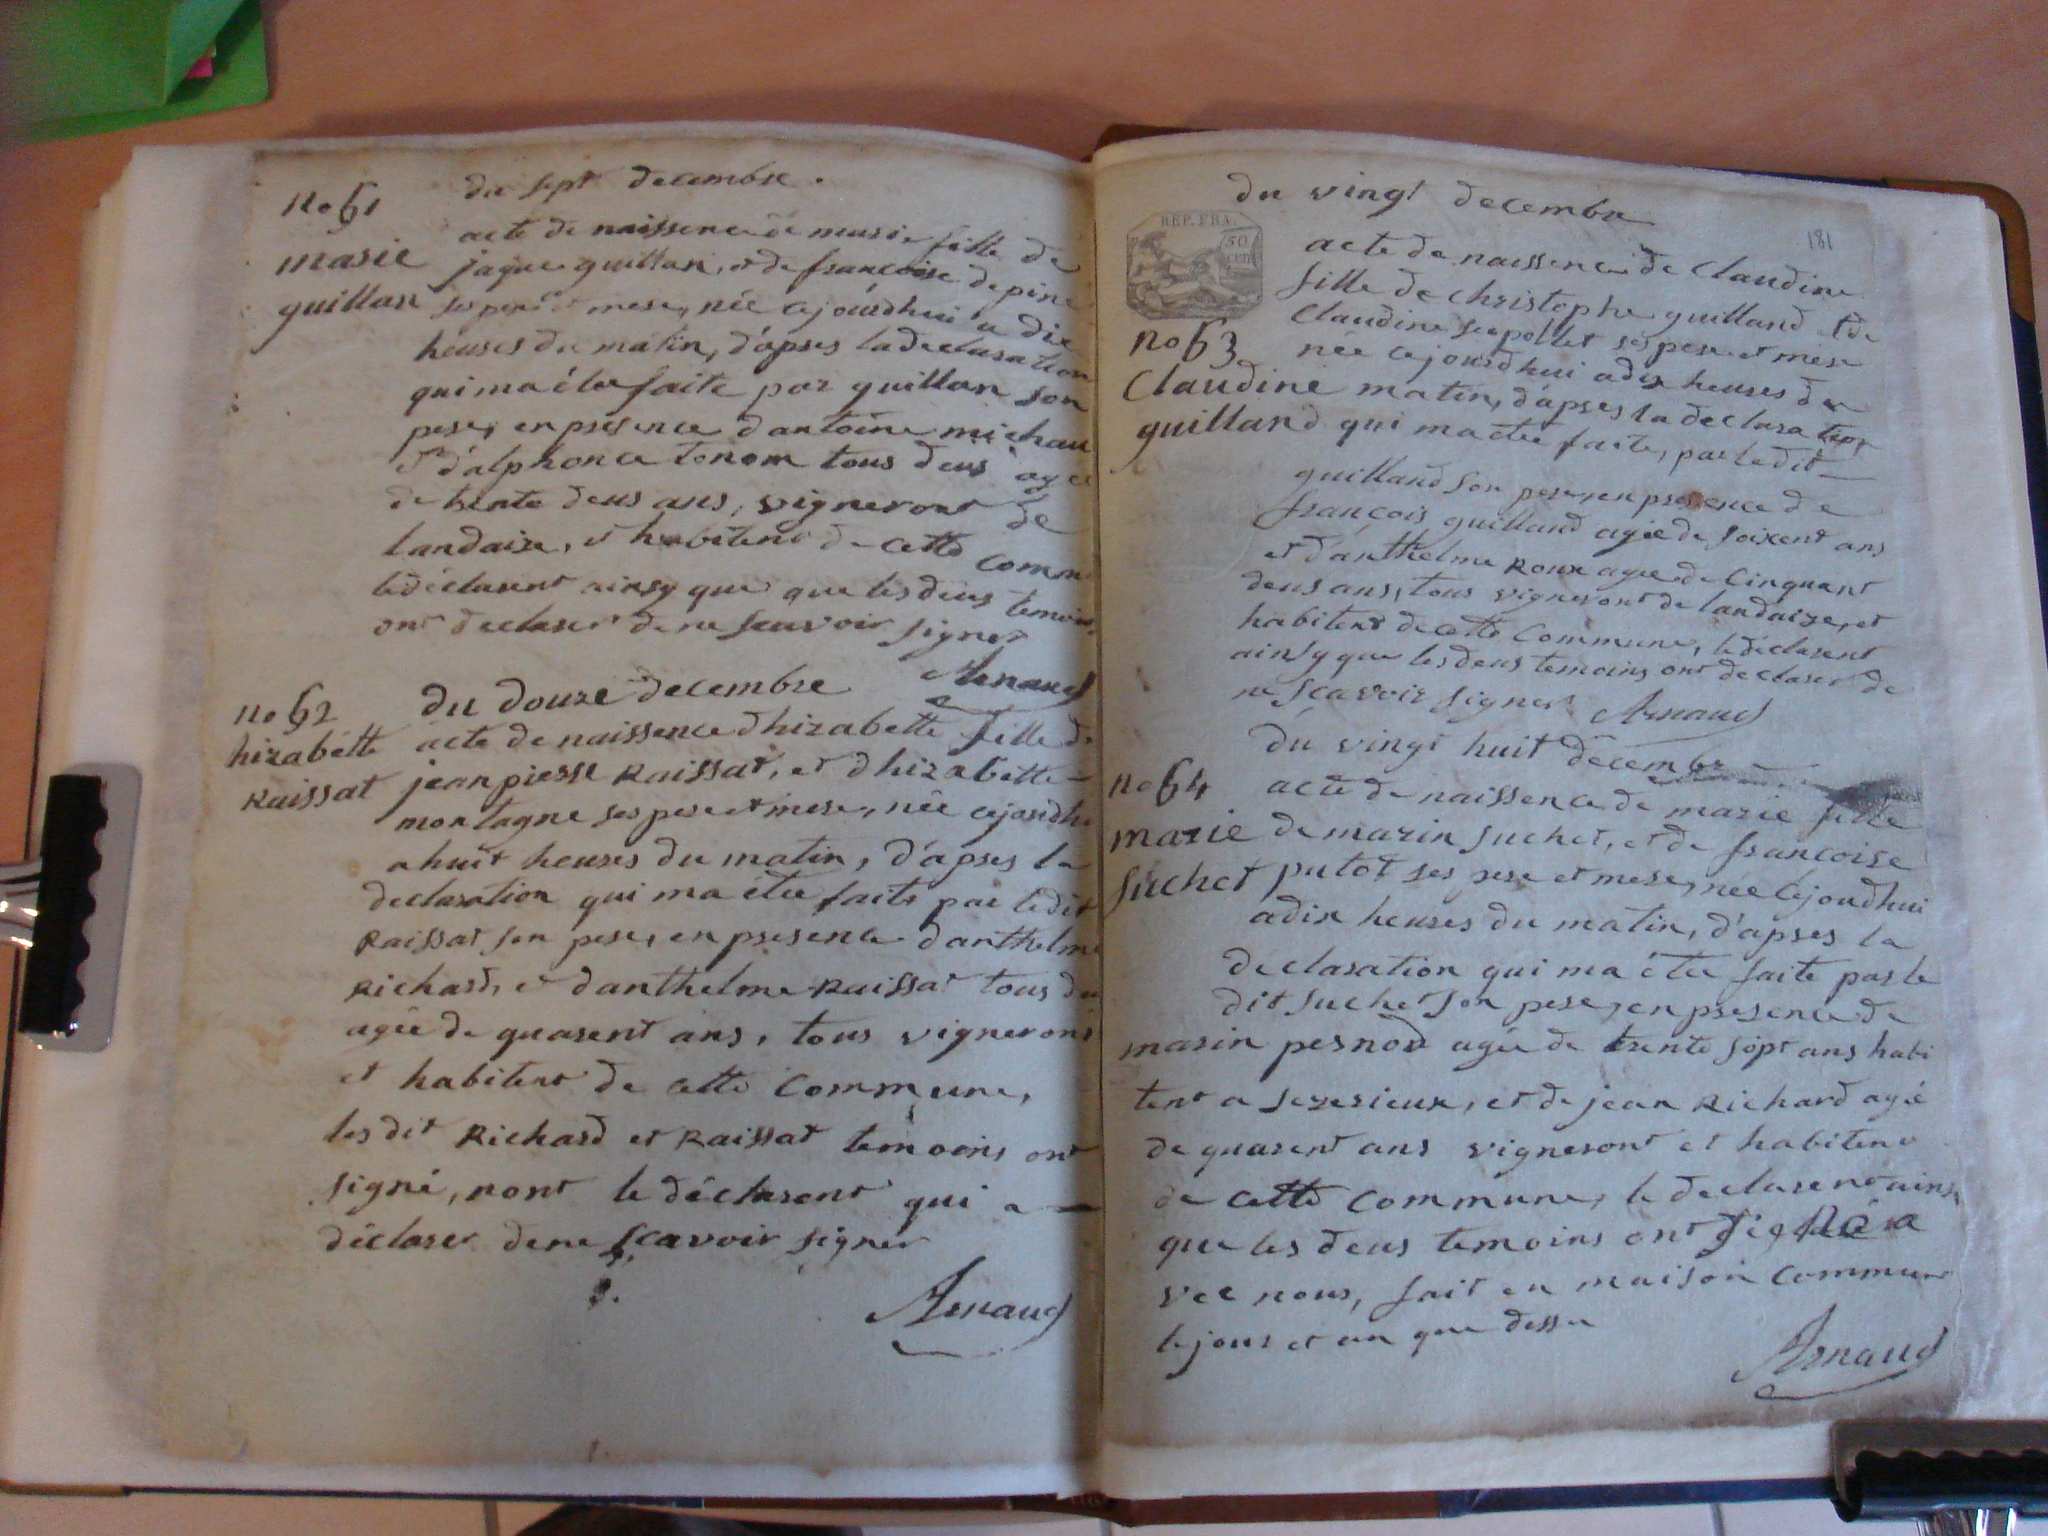 du sept decembre.
no 61
acte de naissence de marie fille de
marie
jaque guillan, et de francoise depine
guillan
ses pere et mere, née cejourdhui a dix
heures du matin, d'apres la declaration
qui ma étée faite par guillan son
pere, en presence dantoine michau
et d'alphonce tonom tous deus agée
de trente deus ans, vigneront de
landaize, et habitent de cette comm
le déclarent ainsy que que les deus temoins
ont declarer de ne scavoir signer
Arnaud
no 62
du douze decembre
hizabette
acte de naissence dhizabette fille de
Raissat
jean pierre Raissat, et dhizabette
montagne ses pere et mere, née cejourdhu
a huit heures du matin, d'apres la
declaration qui ma étée faite par ledit
Raissat son pere, en presence danthelme
Richard, et danthelme Raissat tous du
agée de quarent ans, tous vignerons
et habitent de cette commune,
les dit Richard et Raissat temoins ont
signé, nont le déclarent qui a
déclarer de ne scavoir signer
Arnaud
du vingt decembre
181
REP. FRA.
50
CEN
acte de naissence de Claudine
fille de christophe guilland et de
Claudine ses pere et mere
no 63
née cejourdhui a dix heures du
Claudine
matin, d'apres la declaration
guilland
qui ma étée faite, par ledit
guilland son pere, en presence de
françois guilland agée de soixent ans
et d'anthelme Roux agée de Cinquant
deus ans, tous vigneront de landaize, et
habitent de cette Commune, le déclarent
ainsy que les deus temoins ont declarer de
ne scavoir signer
Arnaud
du vingt huit decembre
no 64
acte de naissence de marie fille
marie
de marin suchet, et de francoise
suchet
putot ses pere et mere, née cejourdhui
a dix heures du matin, d'apres la
declaration qui ma étée faite par le
dit suchet son pere, en presence de
marin pernod agée de trente sept ans habi
tent a sezerieux, et de jean Richard agée
de quarent ans vigneront et habitent
de cette commune, le declarent ainsi
que les deus temoins ont signé a
vec nous, fait en maison commune
le jour et an que dessu
Arnaud